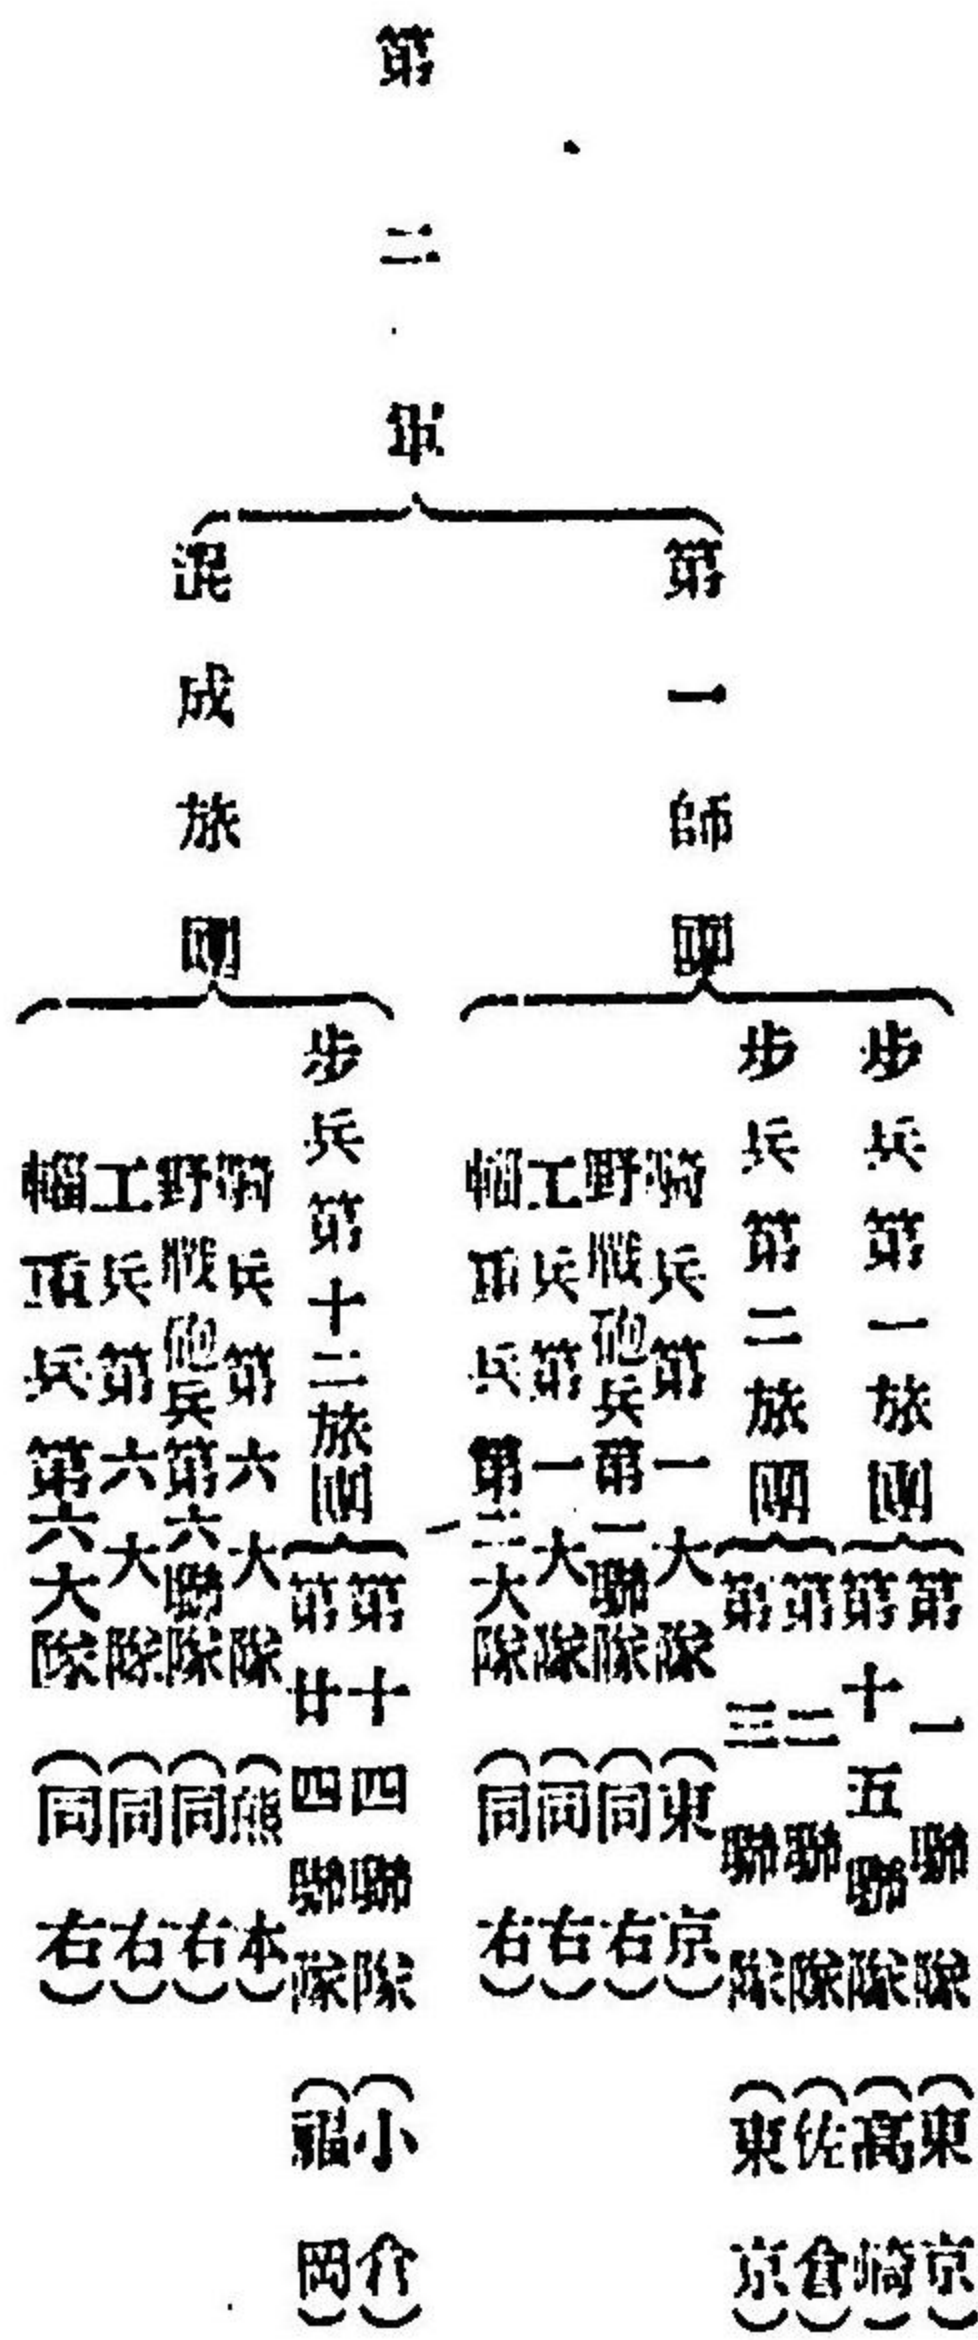 第二軍
第一師團
步兵第一旅團
第一聯隊（東京）
第十五聯隊（高崎）
步兵第二旅團
第二聯隊（佐倉）
第三聯隊（東京）
騎兵第一大隊（東京）
野戰砲兵第一聯隊（同右）
工兵第一大隊（同右）
輜重兵第一大隊（同右）
混成旅團
步兵第十二旅團
第十四聯隊（小倉）
第廿四聯隊（福岡）
騎兵第六大隊（熊本）
野戰砲兵第六聯隊（同右）
工兵第六大隊（同右）
輜重兵第六大隊（同右）